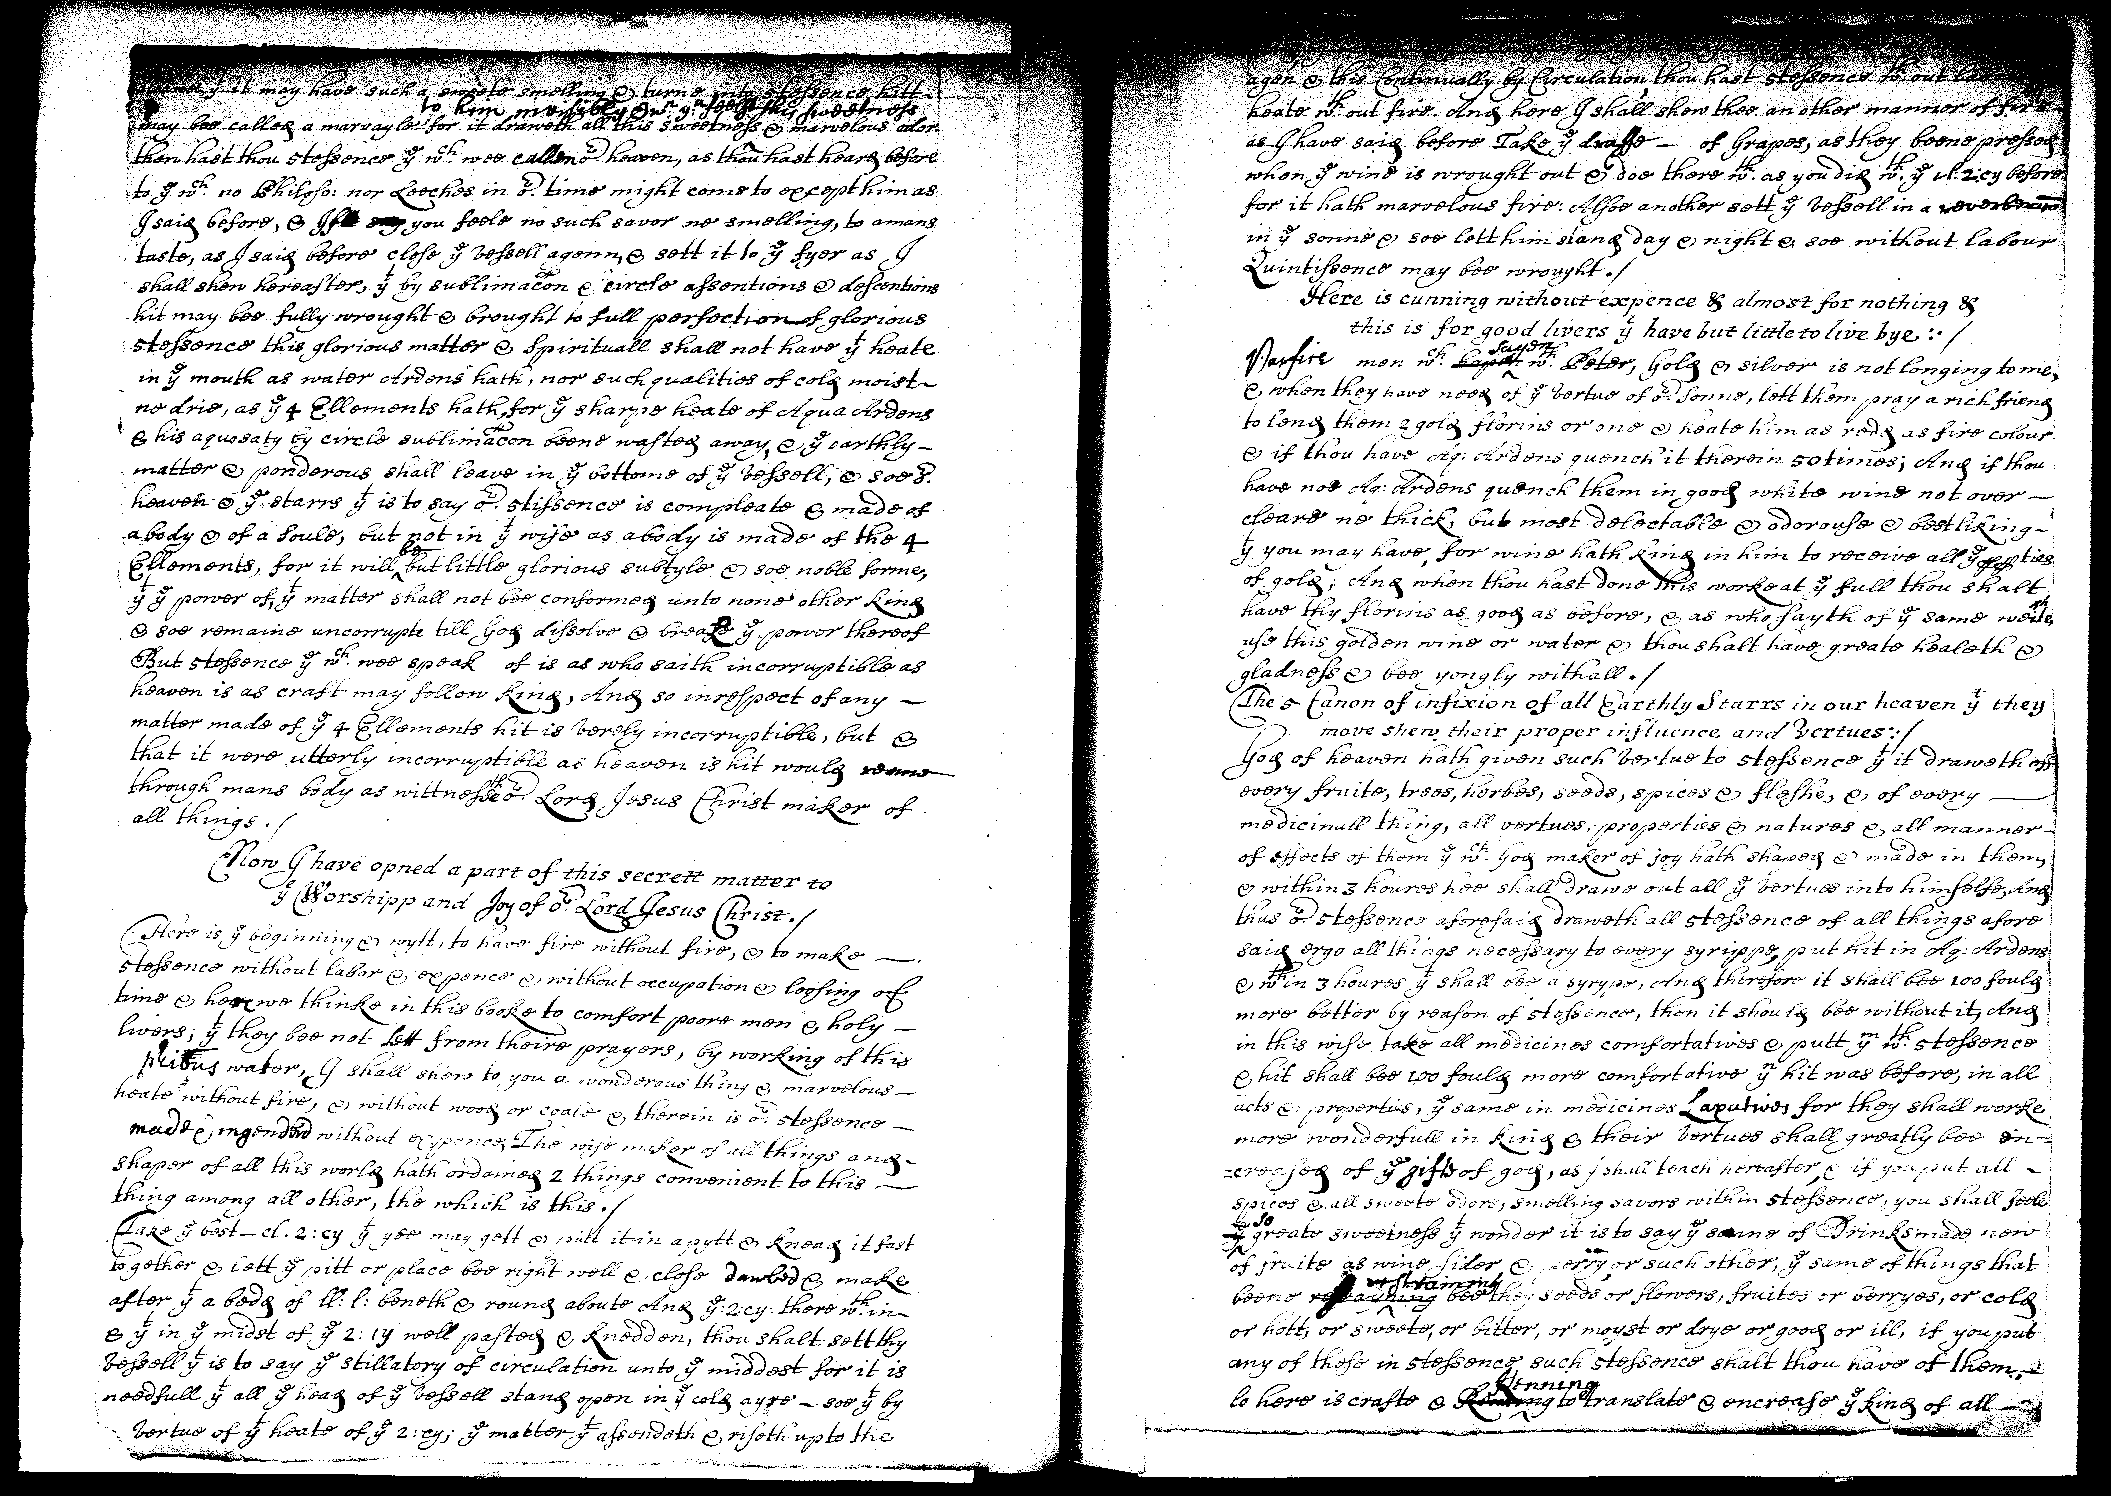 yt it may have such a swete smelling & turne into stessence hitt
to him mervilously & wn yn feele this sweetness
may bee called a marvayle for it draweth all this sweetness & marvelous odor
then hast thou stessence ye wch wee callen or heaven, as thou hast heard before
to ye wch no Philoso: nor Leeches in or time might come to except him as
I said before, & If you feele no such savor ne smelling, to a mans
taste, as I said before close ye vessell agenn, & sett it to ye fyer as I
shall shew hereafter, yt by sublimacon & circle assentions & descentions
hit may bee fully wrought & brought to full perfection of glorious
stessence this glorious matter & spirituall shall not have yt heate
in ye mouth as water Ardens hath, nor such qualities of cold moist
ne drie, as ye 4 Ellements hath, for ye sharpe heate of Aqua Ardens
& his aquosaty by circle sublimacon beene wasted away, & ye earthly
matter & ponderous shall leave in ye bottome of ye vessell, & soe or
heaven & ye starrs yt is to say or stissence is compleate & made of
a body & of a soule, but not in yt wise as a body is made of the 4
Ellements, for it will be but little glorious subtyle & soe noble forme,
yt ye power of yt matter shall not bee conformed unto none other kind
& soe remaine uncorrupte till God dissolve & breake ye power thereof
But stessence ye wch wee speak of is as who saith incorruptible as
heaven is as craft may follow kind, And so in respect of any
matter made of ye 4 Ellements hit is verely incorruptible, but &
that it were utterly incorruptible as heaven is hit would renne
through mans body as wittnesseth or Lord Jesus Christ maker of
all things ./
Now I have opned a part of this secrett matter to
ye Worshipp and Joy of or Lord Jesus Christ ./
Here is ye beginning & wytt, to have fire without fire, & to make
stessence without labor & expence & without occupation & loosing of
time & here we thinke in this booke to comfort poore men & holy
livers; yt they bee not lett from theire prayers, by working of this
water, I shall shew to you a wonderous thing & marvelous
heate without fire, & without wood or coale & therein is or stessence
made & ingendred without expence, The wise maker of all things and
shaper of all this world hath ordained 2 things convenient to this
thing among all other, the which is this ./
Take ye best cl. 2:cy yt yee may gett & putt it in a pytt & knead it fast
together & lett ye pitt or place bee right well & close dawbed & make
after yt a bedd of ll: l: beneth & round aboute And ye: 2:cy: there wth in
& yt in ye midst of ye 2: cy well pasted & knedden, thou shalt sett thy
vessell yt is to say ye stillatory of circulation unto ye middest for it is
needfull yt all ye head of ye vessell stand open in ye cold ayre soe yt by
vertue of yt heate of ye 2:cy; ye matter yt assendeth & riseth up to the
agen & this Continually by Circulation thou hast stessence wthout
heate wth out fire. And here I shall shew thee an other manner of fire
as I have said before Take ye draffe of Grapes, as they beene pressed
when ye wine is wrought out & doe there wth as you did wth ye cl. 2:cy before
for it hath marvelous fire: Alsoe another sett ye vessell in a
in ye sonne & soe lett him stand day & night & soe without labour
Quintissence may bee wrought ./
Here is cunning without expence & almost for nothing &
this is for good livers yt have but little to live bye :·/
Parfite men wch sayen wth Peter, Gold & silver is not longing to me,
& when they have need of ye vertue of or sonne, lett them pray a rich friend
to lend them 2 gold florins or one & heate him as redd as fire colour
& if thou have Aq: Ardens quench it therein 50 times; And if thou
have noe Aq: Ardens quench them in good white wine not over
cleare ne thick, but most delectable & odorouse & best liking
yt you may have, for wine hath kind in him to receive all ye ppties
of gold; And when thou hast done this worke at ye full thou shalt
have thy florins as good as before, & as who sayth of ye same weite
use this golden wine or water & thou shalt have greate healeth &
gladness & bee yongly withall ./
The 5 Canon of infixion of all Earthly Starrs in our heaven yt they
move shew their proper influence and Vertues :·/
God of heaven hath given such Vertue to stessence yt it draweth off
every fruite, trees, herbes, seeds, spices & fleshe, & of every
medicinull thing, all vertues, properties & natures & all manner
of effects of them ye wch God maker of joy hath shaped & made in them,
& within 3 houres hee shall drawe out all ye vertues into himselfe, And
thus or stessence aforesaid draweth all stessence of all things afore
said ergo all things necessary to every syrippe, put hit in Aq: Ardens
& wth in 3 houres yt shall bee a syrype, And therefore it shall bee 100 fould
more better by reason of stessence, then it should bee without it, And
in this wise take all medicines comfortatives & putt ym wth stessence
& hit shall bee 100 fould more comfortative yn hit was before, in all
acts & properties, ye same in medicines Laxutives for they shall worke
more wonderfull in kind & their vertues shall greatly bee en-
-creased of ye gifts of god, as I shall teach hereafter, & if you put all
spices & all sweete odors, smelling savors within stessence, you shall feele
so greate sweetness yt wonder it is to say ye same of Drinks made new
of fruite as wine, sider, & perry, or such other, ye same of things that
beene restraining bee they seeds or flowers, fruites or berryes, or cold
or hott, or sweete, or bitter, or moyst or drye or good or ill, if you put
any of those in stessence, such stessence shalt thou have of them,
lo here is crafte & Kenning to translate & encrease ye kind of all